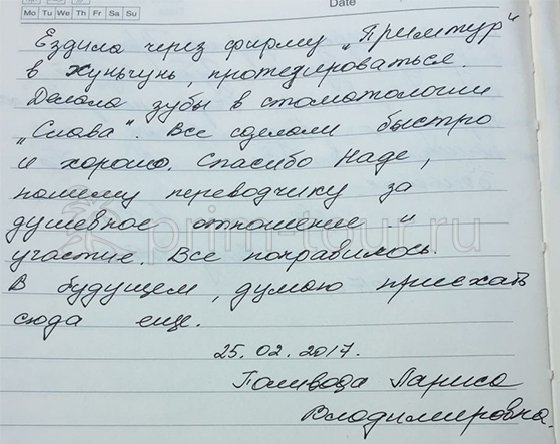 Date
Mo Tu We Th Fr Sa Su
Ездила через фирму „Примтур"
в Хуньчунь, протезироваться.
Делала зубы в стоматологии
„Слава". Все сделали быстро
и хорошо. Спасибо Наде,
нашему переводчику за
душевное отношение и
участие. Все понравилось.
В будущем, думаю приехать
сюда еще.
25.02.2017.
Поливода Лариса
Владимировна
prim-tour.ru